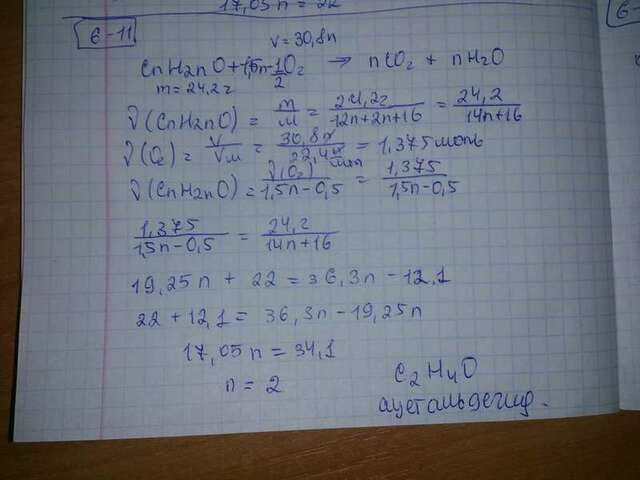 17,05n = 22
6-11
V = 30,8л
CnH2nO + 1,5n-1/2 O2 → nCO2 + nH2O
m = 24,2г
ν(CnH2nO) = m/M = 24,2г/12n+2n+16 = 24,2/14n+16
ν(O2) = V/Vм = 30,8л/22,4л/моль = 1,375 моль
ν(CnH2nO) = ν(O2)/1,5n-0,5 = 1,375/1,5n-0,5
1,375/1,5n-0,5 = 24,2/14n+16
19,25n + 22 = 36,3n - 12,1
22 + 12,1 = 36,3n - 19,25n
17,05n = 34,1
n = 2
C2H4O
ацетальдегид.